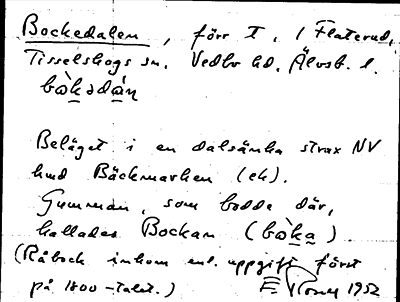 Bockedalen, förr T. i Flaterud,
Tisselskogs sn. Vedbo hd. Älvsb. l.
bòkədàn
Beläget i en dalsänka strax NV
hmd Bäckmarken (ek).
Gumman, som bodde där,
kallades Bockan (bòka)
(Råbock inkom enl. uppgift först
på 1800-talet.) 1952